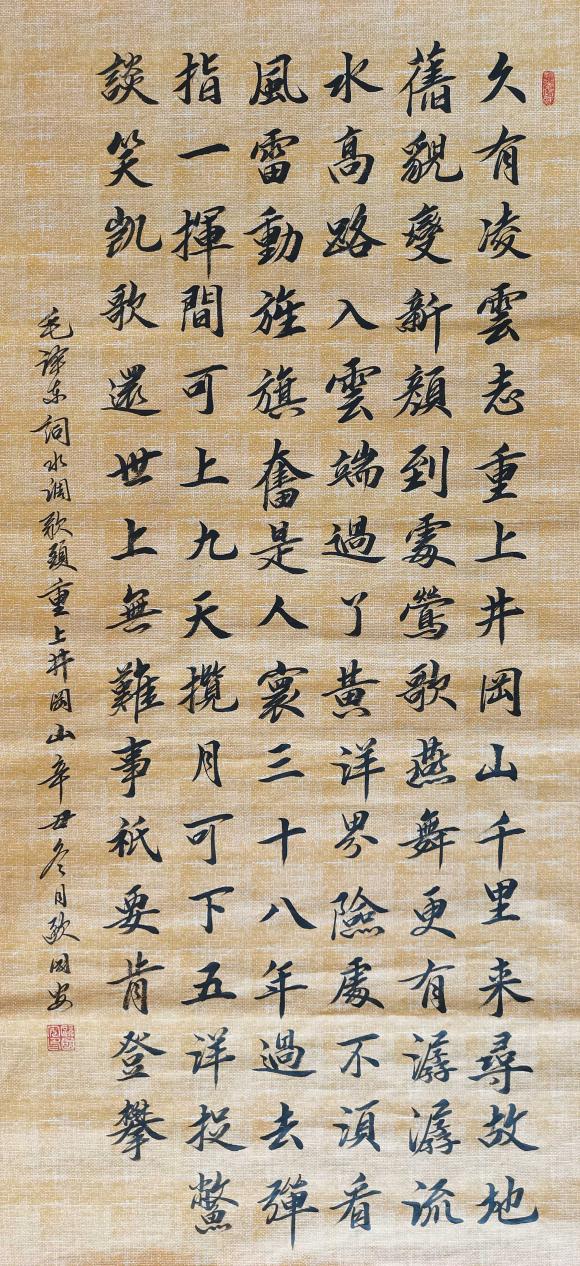 久有凌雲志重上井岡山千里来尋故地
舊貌變新顏到處鶯歌燕舞更有潺潺流
水高路入雲端過了黃洋界險處不須看
風雷動旌旗奮是人寰三十八年過去彈
指一揮間可上九天攬月可下五洋捉鱉
談笑凱歌還世上無難事祇要肯登攀
毛泽东詞水調歌頭重上井岡山辛丑冬月